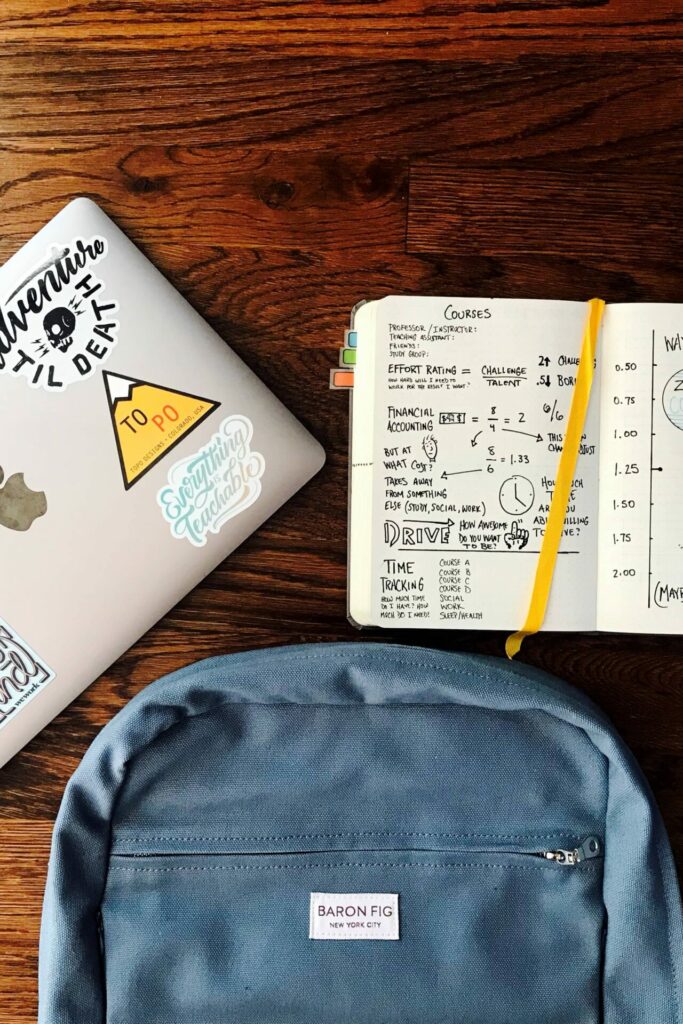 Adventure
'TIL DEATH
TO PO
TOPO DESIGNS • COLORADO, USA
Everything
is
Teachable
wework
COURSES
PROFESSOR / INSTRUCTOR:
TEACHING ASSISTANT:
FRIENDS:
STUDY GROUP:
EFFORT RATING = CHALLENGE
TALENT
HOW HARD WILL I NEED TO
WORK FOR THE RESULT I WANT?
2↑ CHALLENG
.5↓ BORI
6/6
FINANCIAL
ACCOUNTING = 8/4 = 2
THIS CAN
CHANGE ADJUST
BUT AT
WHAT COST?
8/6 = 1.33
TAKES AWAY
FROM SOMETHING
ELSE (STUDY, SOCIAL, WORK)
HOW MUCH
TIME
ARE YOU
WILLING
TO GIVE?
DRIVE
HOW AWESOME
DO YOU WANT
TO BE?
TIME
TRACKING
HOW MUCH TIME
DO I HAVE? HOW
MUCH DO I NEED?
COURSE A
COURSE B
COURSE C
COURSE D
SOCIAL
WORK
SLEEP/HEALTH
0.50
0.75
1.00
1.25
1.50
1.75
2.00
WA
(MAYB
BARON FIG
NEW YORK CITY